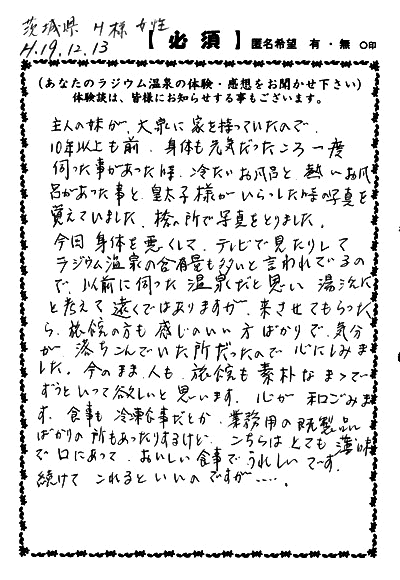 茨城県 H様 女性
H.19.12.13
【必須】 匿名希望 有・無 ○印
(あなたのラジウム温泉の体験・感想をお聞かせ下さい)
体験談は、皆様にお知らせする事もございます。
主人の妹が、大泉に家を持っていたので、
10年以上も前、身体も元気だったころ一度
伺った事があった時、冷たいお風呂と、熱いお風
呂があった事と、皇太子様がいらっした時の写真を
覚えていました。松の所で写真をとりました。
今回 身体を悪くして、テレビで見たりして
ラジウム温泉の含有量も多いと言われているの
で、以前に伺った温泉だと思い 湯治に
と考えて 遠くではありますが、来させてもらった
ら、旅館の方も 感じのいい方ばかりで、気分
が 落ちこんでいた所だったので 心にしみま
した。今のまま、人も、旅館も 素朴なままで
ずうといって欲しいと思います。心が 和ごみま
す。食事も 冷凍食事だとか、業務用の既製品
ばかりの所もあったりするけど、こちらは とても 薄味
で口にあって、おいしい食事で うれしいです。
続けて これるといいのですが…..。